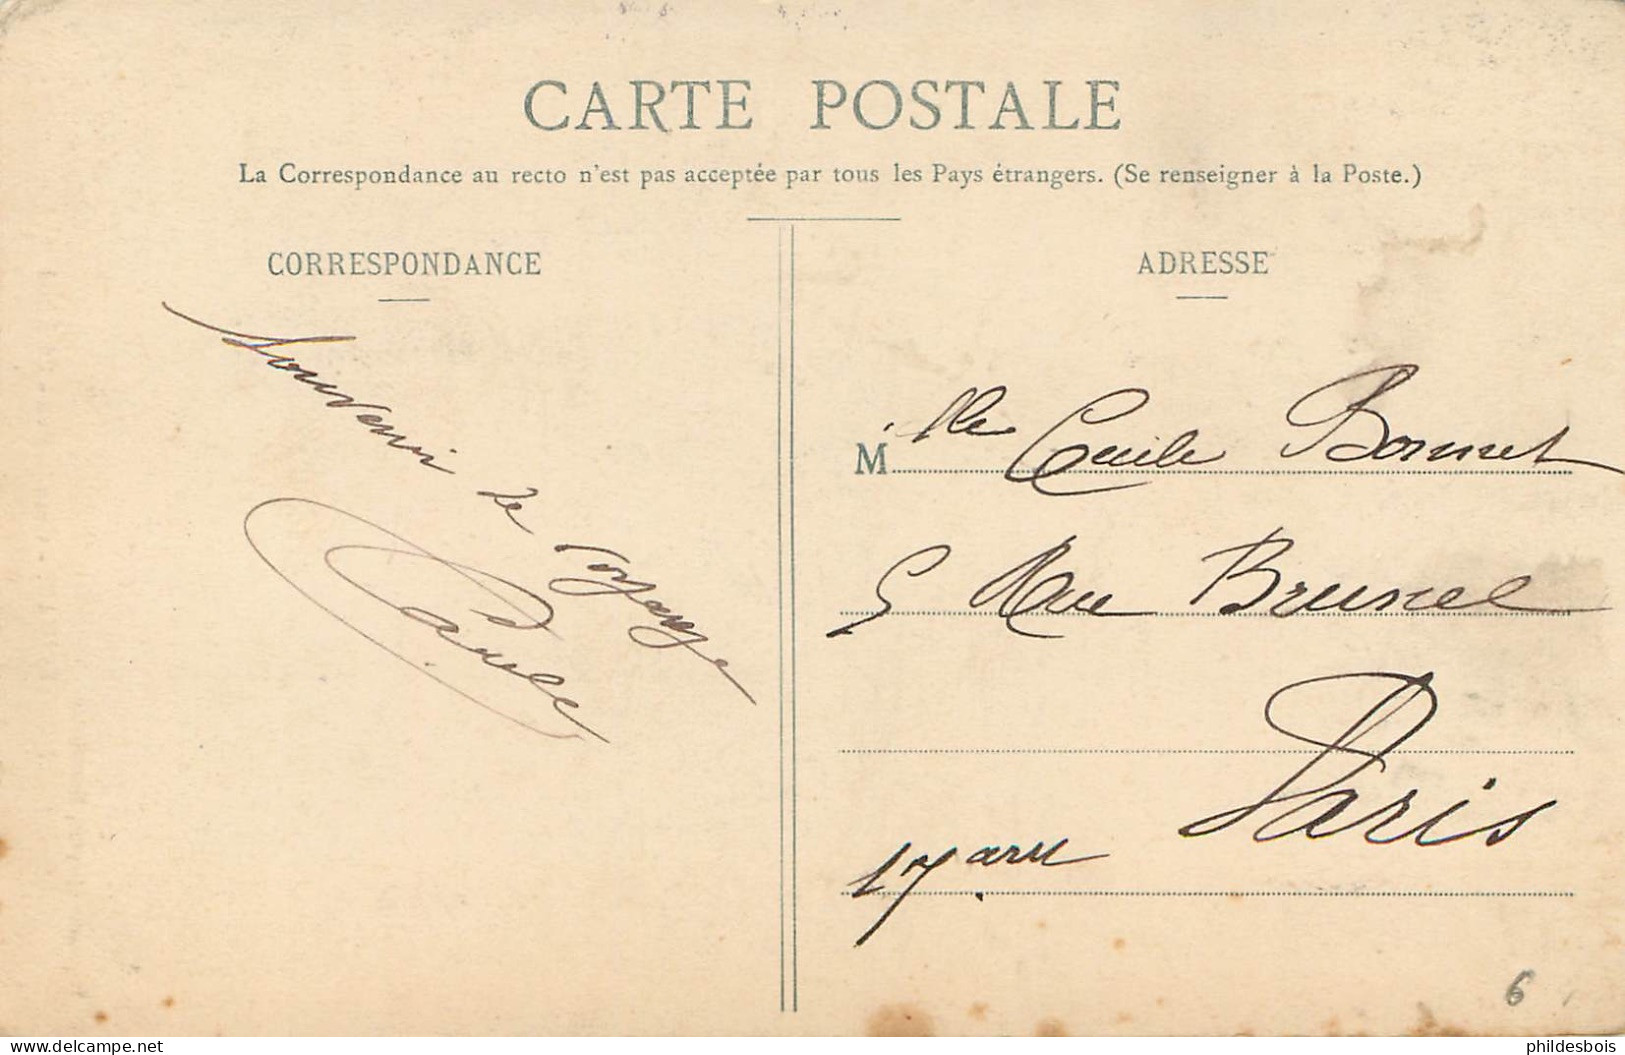 CARTE POSTALE
La Correspondance au recto n'est pas acceptée par tous les Pays étrangers. (Se renseigner à la Poste.)
CORRESPONDANCE
Souvenir de voyage
ADRESSE
Mlle Cécile Bonnet
5 Rue Brunel
Paris
17. arr
6
phildesbois